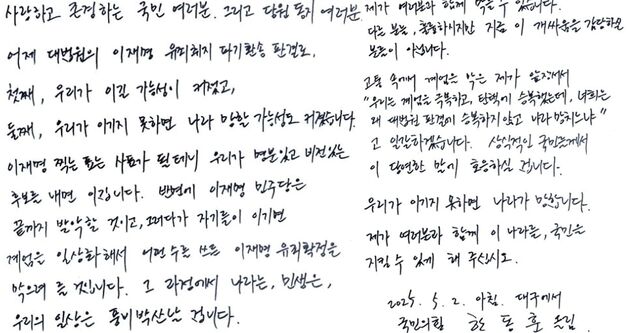 사랑하고 존경하는 국민 여러분. 그리고 당원 동지 여러분.
어제 대법원의 이재명 유죄취지 파기환송 판결로,
첫째, 우리가 이길 가능성이 커졌고,
둘째, 우리가 이기지 못하면 나라 망할 가능성도 커졌습니다.
이재명 찍는 표는 사표가 될테니 우리가 명분있고 비전있는
후보를 내면 이깁니다. 반면에 이재명 민주당은
끝까지 발악할 것이고, 그러다가 자기들이 이기면
계엄을 일상화해서 어떤 수를 쓰든 이재명 유죄확정을
막으려 들 것입니다. 그 과정에서 나라는, 민생은,
우리의 일상은 풍비박산날 겁니다.
제가 여러분과 함께 막을 수 있습니다.
다른 분들, 훌륭하시지만 지금 이 개싸움을 감당하실
분들이 아닙니다.
고통 속에서 계엄을 막은 제가 앞장서서
"우리는 계엄을 극복하고, 탄핵에 승복했는데, 너희는
왜 대법원 판결에 승복하지 않고 나라 망치느냐"
고 일갈하겠습니다. 상식적인 국민들께서
이 당연한 말에 호응하실 겁니다.
우리가 이기지 못하면 나라가 망합니다.
제가 여러분과 함께 이 나라를, 국민을
지킬 수 있게 해 주십시오.
2025. 5. 2. 아침. 대구에서
국민의힘 한동훈 올림